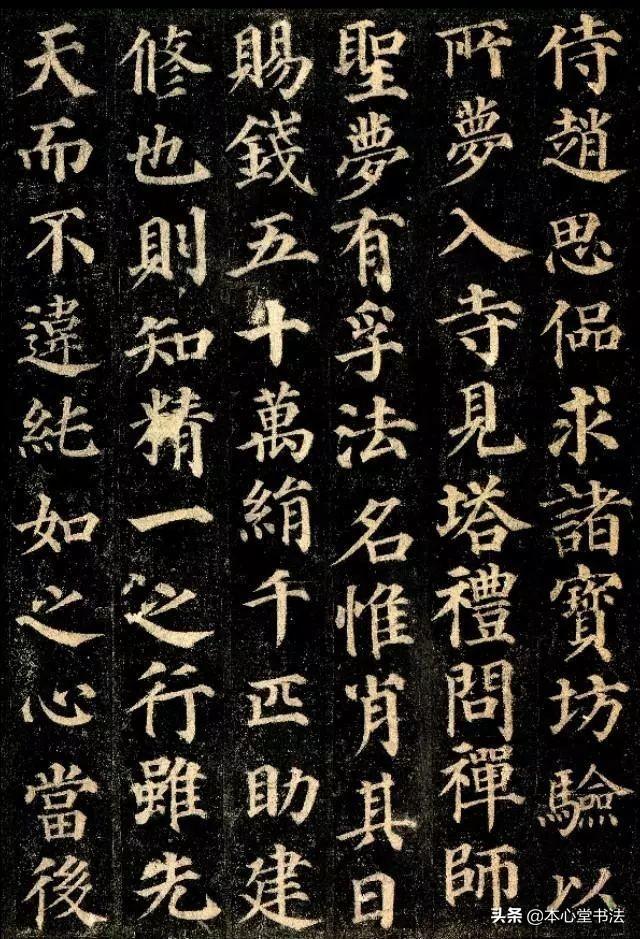 侍趙思侃求諸寶坊驗以
所夢入寺見塔禮問禪師
聖夢有孚法名惟肖其日
賜錢五十萬絹千匹助建
修也則知精一之行雖先
天而不違純如之心當後
头条 @本心堂书法